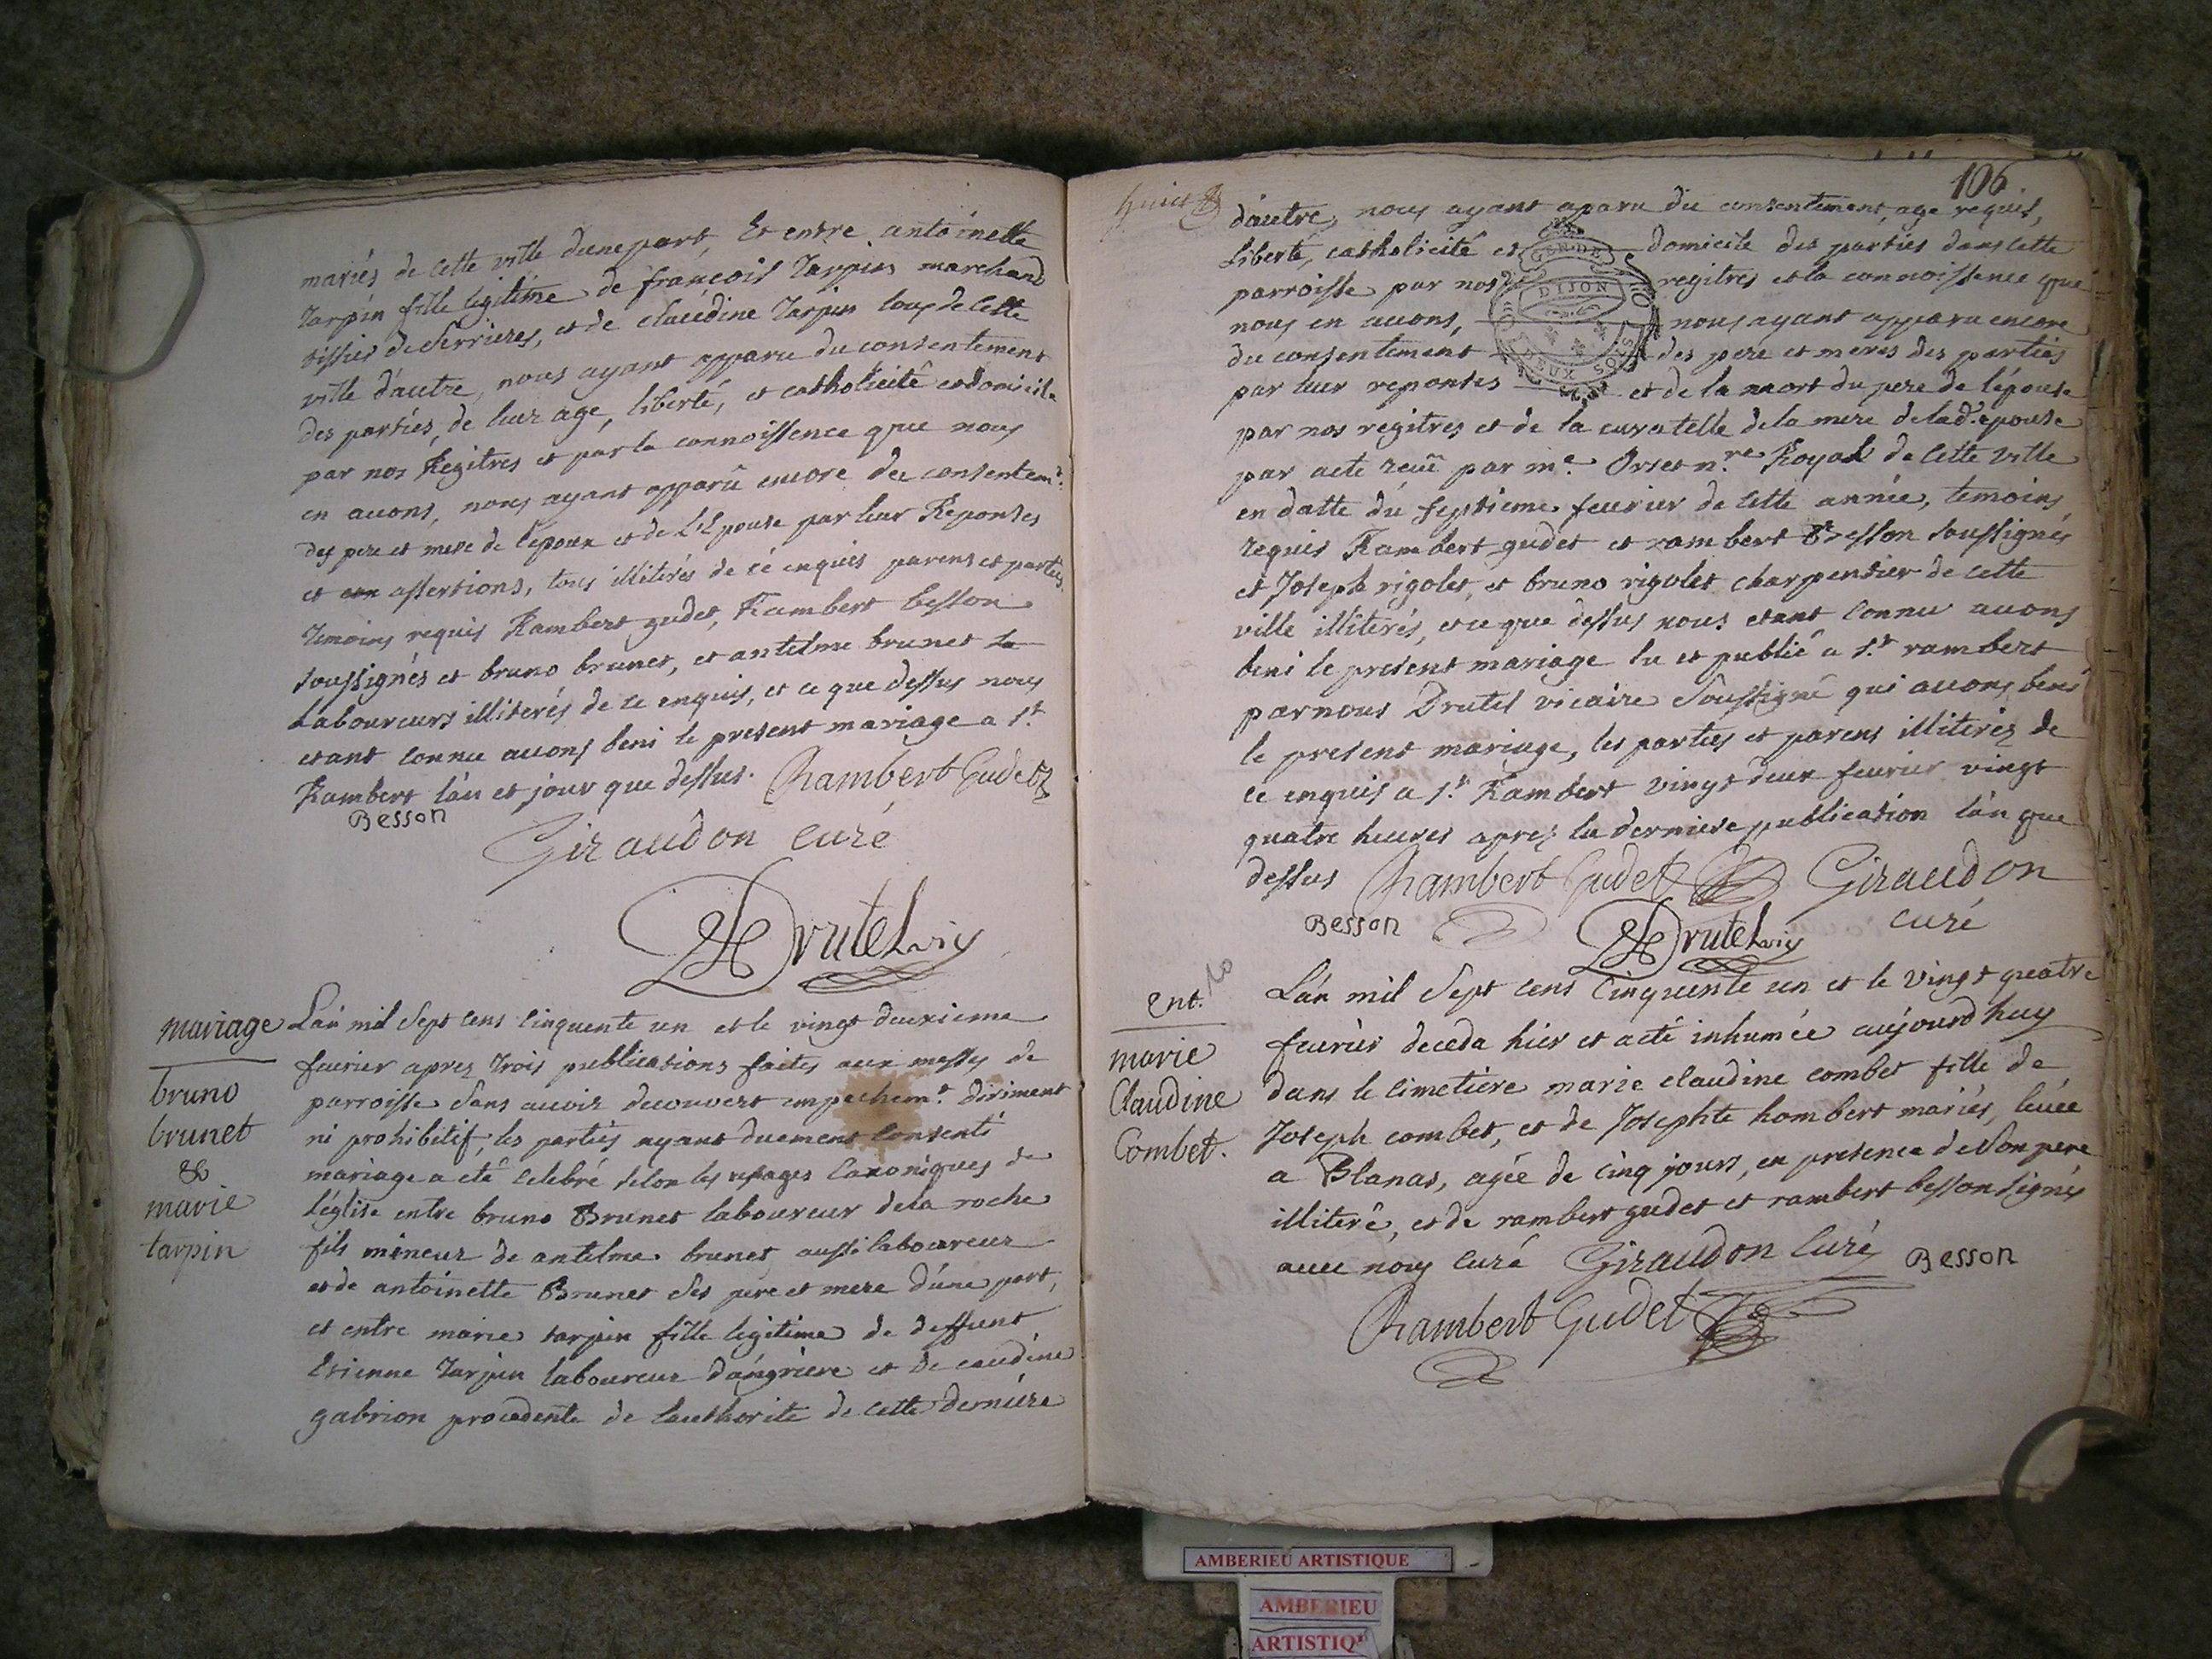 mariés de cette ville dune part, Et entre antoinette
tarpin fille legitime de françois tarpin marchand
tissier de Serrieres, et de claudine tarpin tous de cette
ville d'autre, nous ayant apparu du consentement
des parties, de leur age, liberté, et catholicité et domicile
par nos Regitres et par la connoissence que nous
en avons, nous ayant apparû encore du consentemt.
des pere et mere de l'epoux et de L'Epouse par leur Reponses
et assertions, tous illiterés de ce enquis parens et parties
temoins requis Rambert gudet, Rambert besson
soussignés et bruno brunet, et antelme brunet
Laboureurs illiterés de ce enquis, et ce que dessus nous
etant connu avons beni le present mariage a St.
Rambert l'an et jour que dessus. Rambert Gudet
Besson
Giraudon curé
Drutel vic
mariage
bruno
brunet
&
marie
tarpin
L'an mil Sept cens Cinquente un et le vingt deuxieme
fevrier apres trois publications faites aux messes de
parroisse Sans avoir decouvert empechemt. diriment
ni prohibitif, les parties ayant duement Consenti
mariage a eté celebré selon les usages Canoniques de
l'église entre bruno Brunet laboureur de la roche
fils mineur de antelme brunet aussi laboureur
et de antoinette Brunet Ses pere et mere d'une part,
et entre marie tarpin fille legitime de deffunt
Etienne tarpin laboureur d'angriere et de caudine
gabrion procedente de lauthorité de cette derniere
106
d'autre, nous ayant aparu du consentement, age requis,
Liberté, catholicité et domicile des parties dans cette
parroisse par nos regitres et la connoissence que
nous en avons, nous ayant apparu encore
du consentement des pere et meres des parties
par leur reponses et de la mort du pere de l'épouse
par nos regitres et de la curatelle de la mere de lad. epouse
par acte reçû par me. Orset n.re Royal de cette ville
en datte du septieme fevrier de cette année, temoins
requis Rambert gudet et rambert Besson soussignés
et Joseph rigolet, et bruno rigolet charpentier de cette
ville illiterés, et ce que dessus nous etant connu avons
beni le present mariage lu et publié a St. rambert
par nous Drutel vicaire Soussigné qui avons beni
le present mariage, les parties et parens illiterez de
ce enquis a St. Rambert vingt deux fevrier vingt
quatre heures apres la derniere publication l'an que
dessus Rambert Gudet Giraudon
Besson curé
Drutel vic
GEN. DE
DIJON
DEUX SOLS
ent.
marie
Claudine
Combet.
L'an mil Sept cens Cinquente un et le vingt quatre
fevrier deceda hier et a eté inhumée aujourdhuy
dans le cimetiere marie claudine combet fille de
Joseph combet, et de Josephte hombert mariés, levée
a Blanas, agée de cinq jours, en presence de Son pere
illiteré, et de rambert gudet et rambert besson signés
avec nous curé Giraudon Curé Besson
Rambert Gudet
AMBERIEU ARTISTIQUE
AMBERIEU
ARTISTIQ